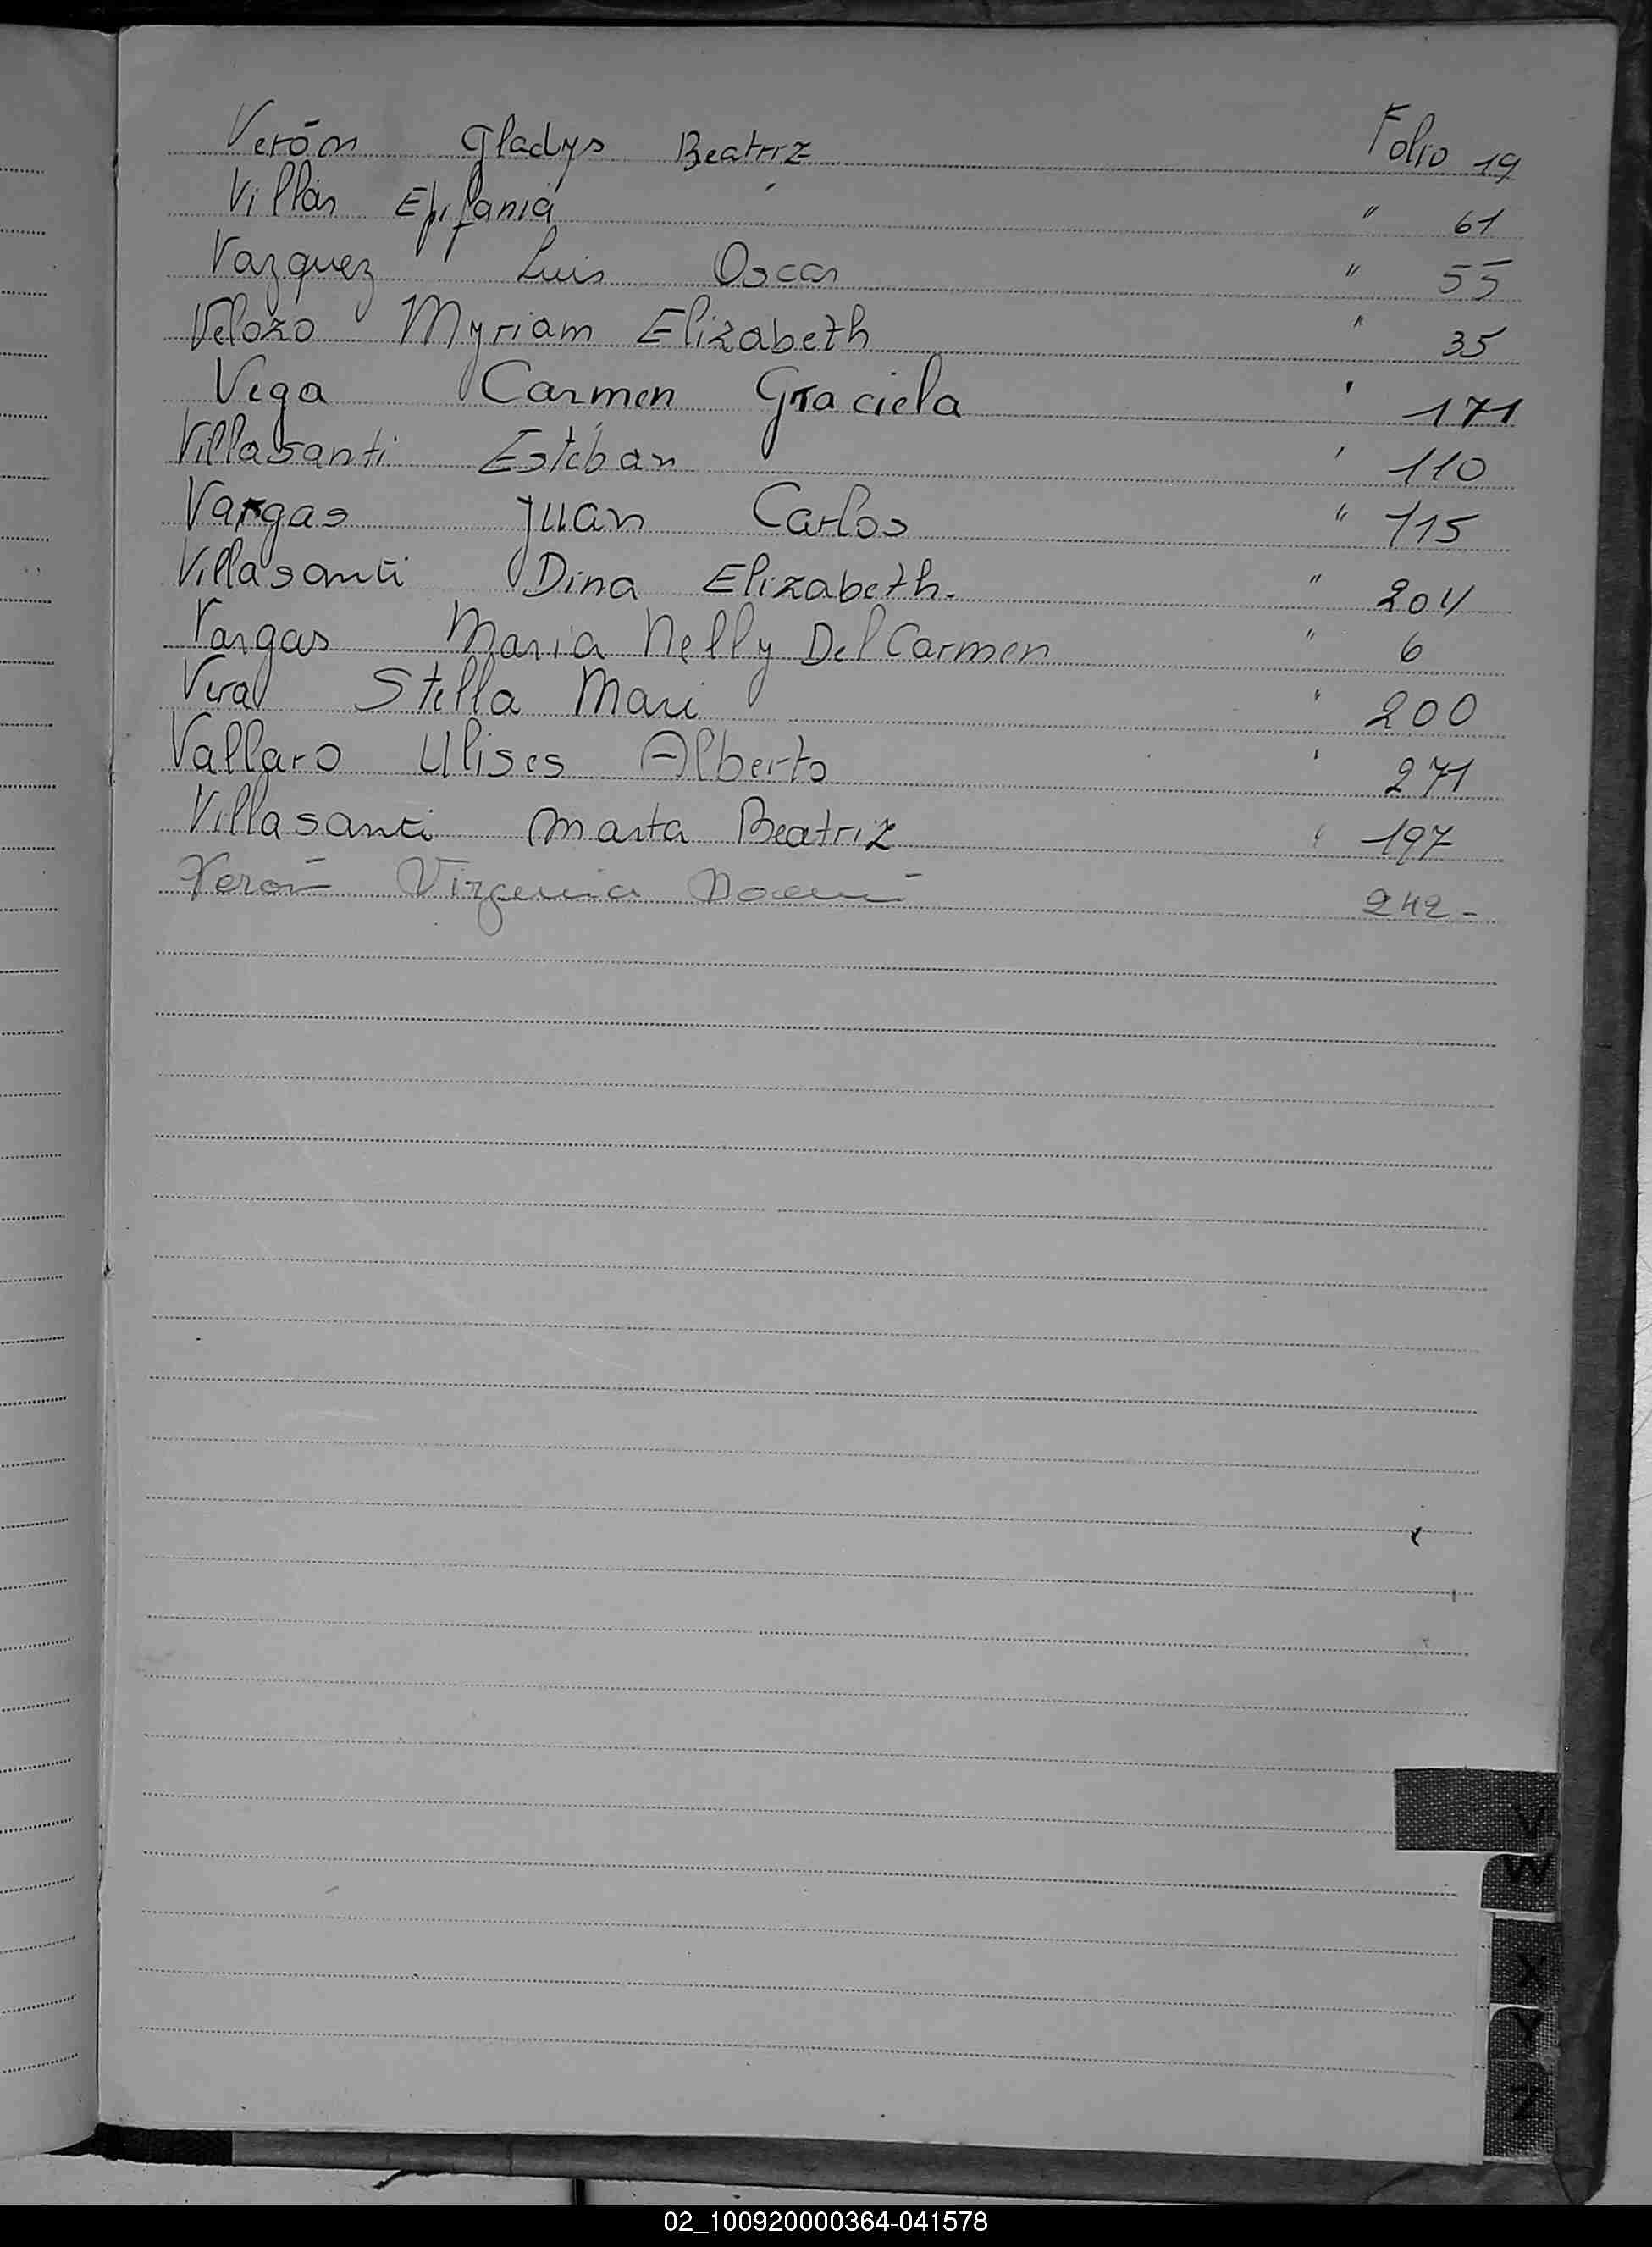 Verón Gladys Beatriz Folio 19
Villán Epifania " 61
Vazquez Luis Oscar " 55
Velozo Myriam Elizabeth " 35
Vega Carmen Graciela ' 171
Villasanti Estéban ' 110
Vargas Juan Carlos " 115
Villasanti Dina Elizabeth. " 204
Vargas Maria Nelly Del Carmen " 6
Vera Stella Mari " 200
Vallaro Ulises Alberto ' 271
Villasanti Marta Beatriz " 197
Verón Virginia Noemí 242-
V
W
X
Y
Z
02_100920000364-041578